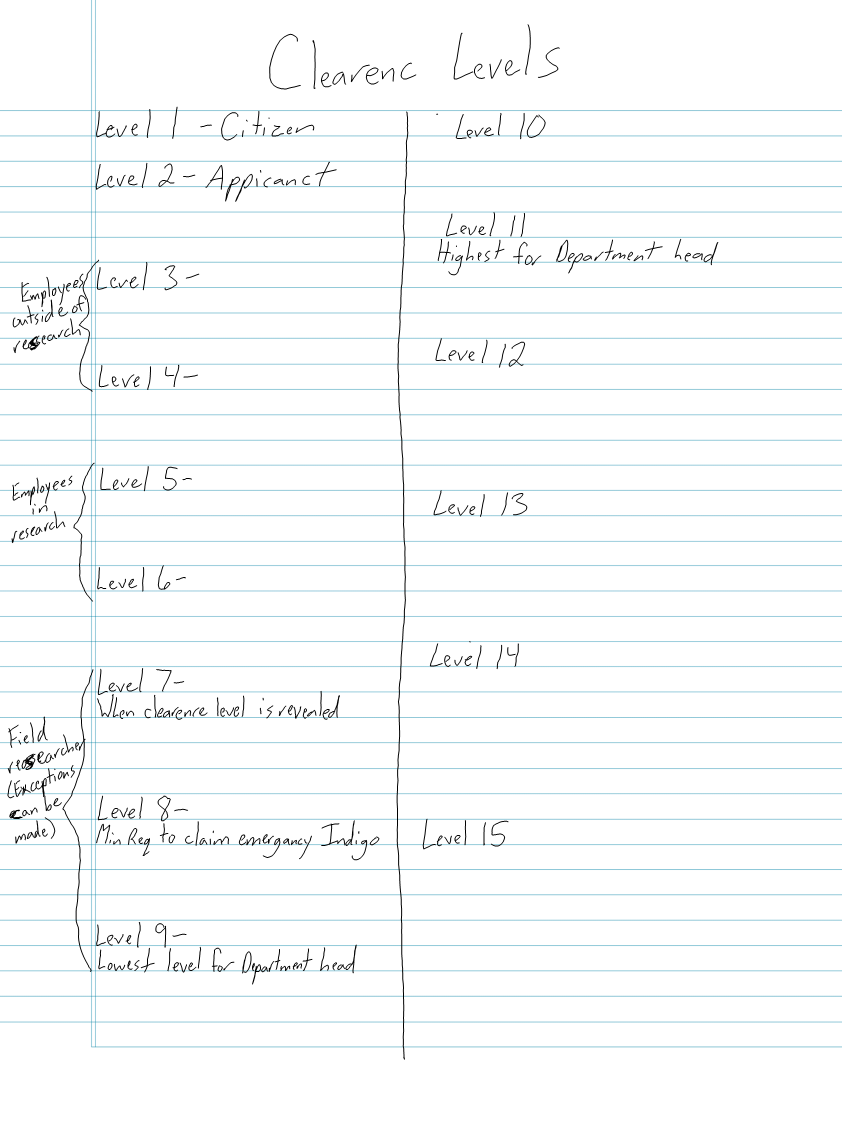 Clearenc Levels
Level 1 - Citizen
Level 2 - Appicanct
Employees
outside of
research
Level 3 -
Level 4 -
Employees
in
research
Level 5 -
Level 6 -
Field
researcher
(Exceptions
can be
made)
Level 7 -
When clearence level is revealed
Level 8 -
Min Req to claim emergancy Indigo
Level 9 -
Lowest level for Department head
Level 10
Level 11
Highest for Department head
Level 12
Level 13
Level 14
Level 15